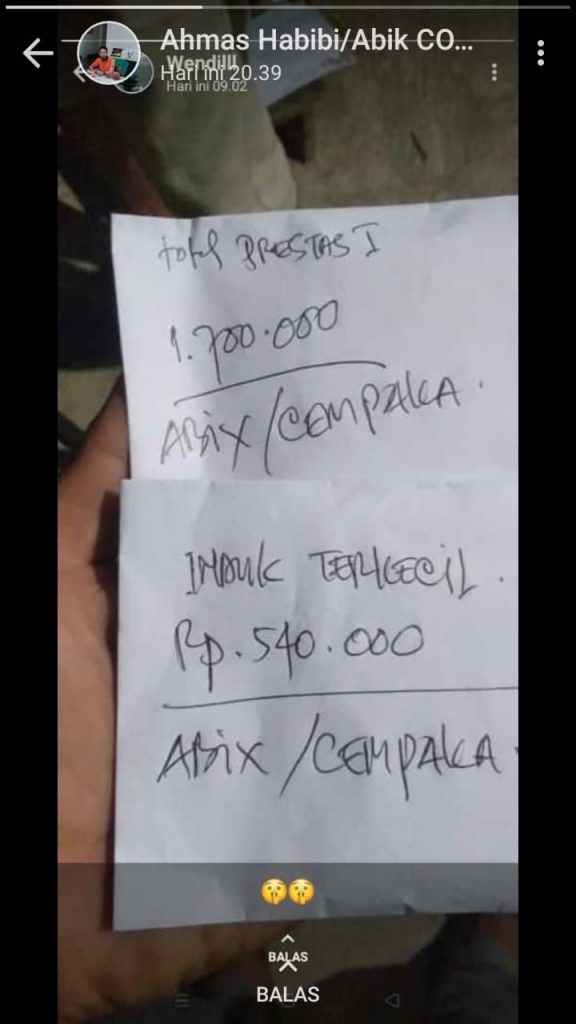 Ahmas Habibi/Abik CO...
Wendilll
Hari ini 20.39
Hari ini 09.02
total PRESTASI
1.700.000
ABIX/CEMPAKA.
INDUK TERKECIL.
Rp.540.000
ABIX/CEMPAKA.
BALAS
BALAS